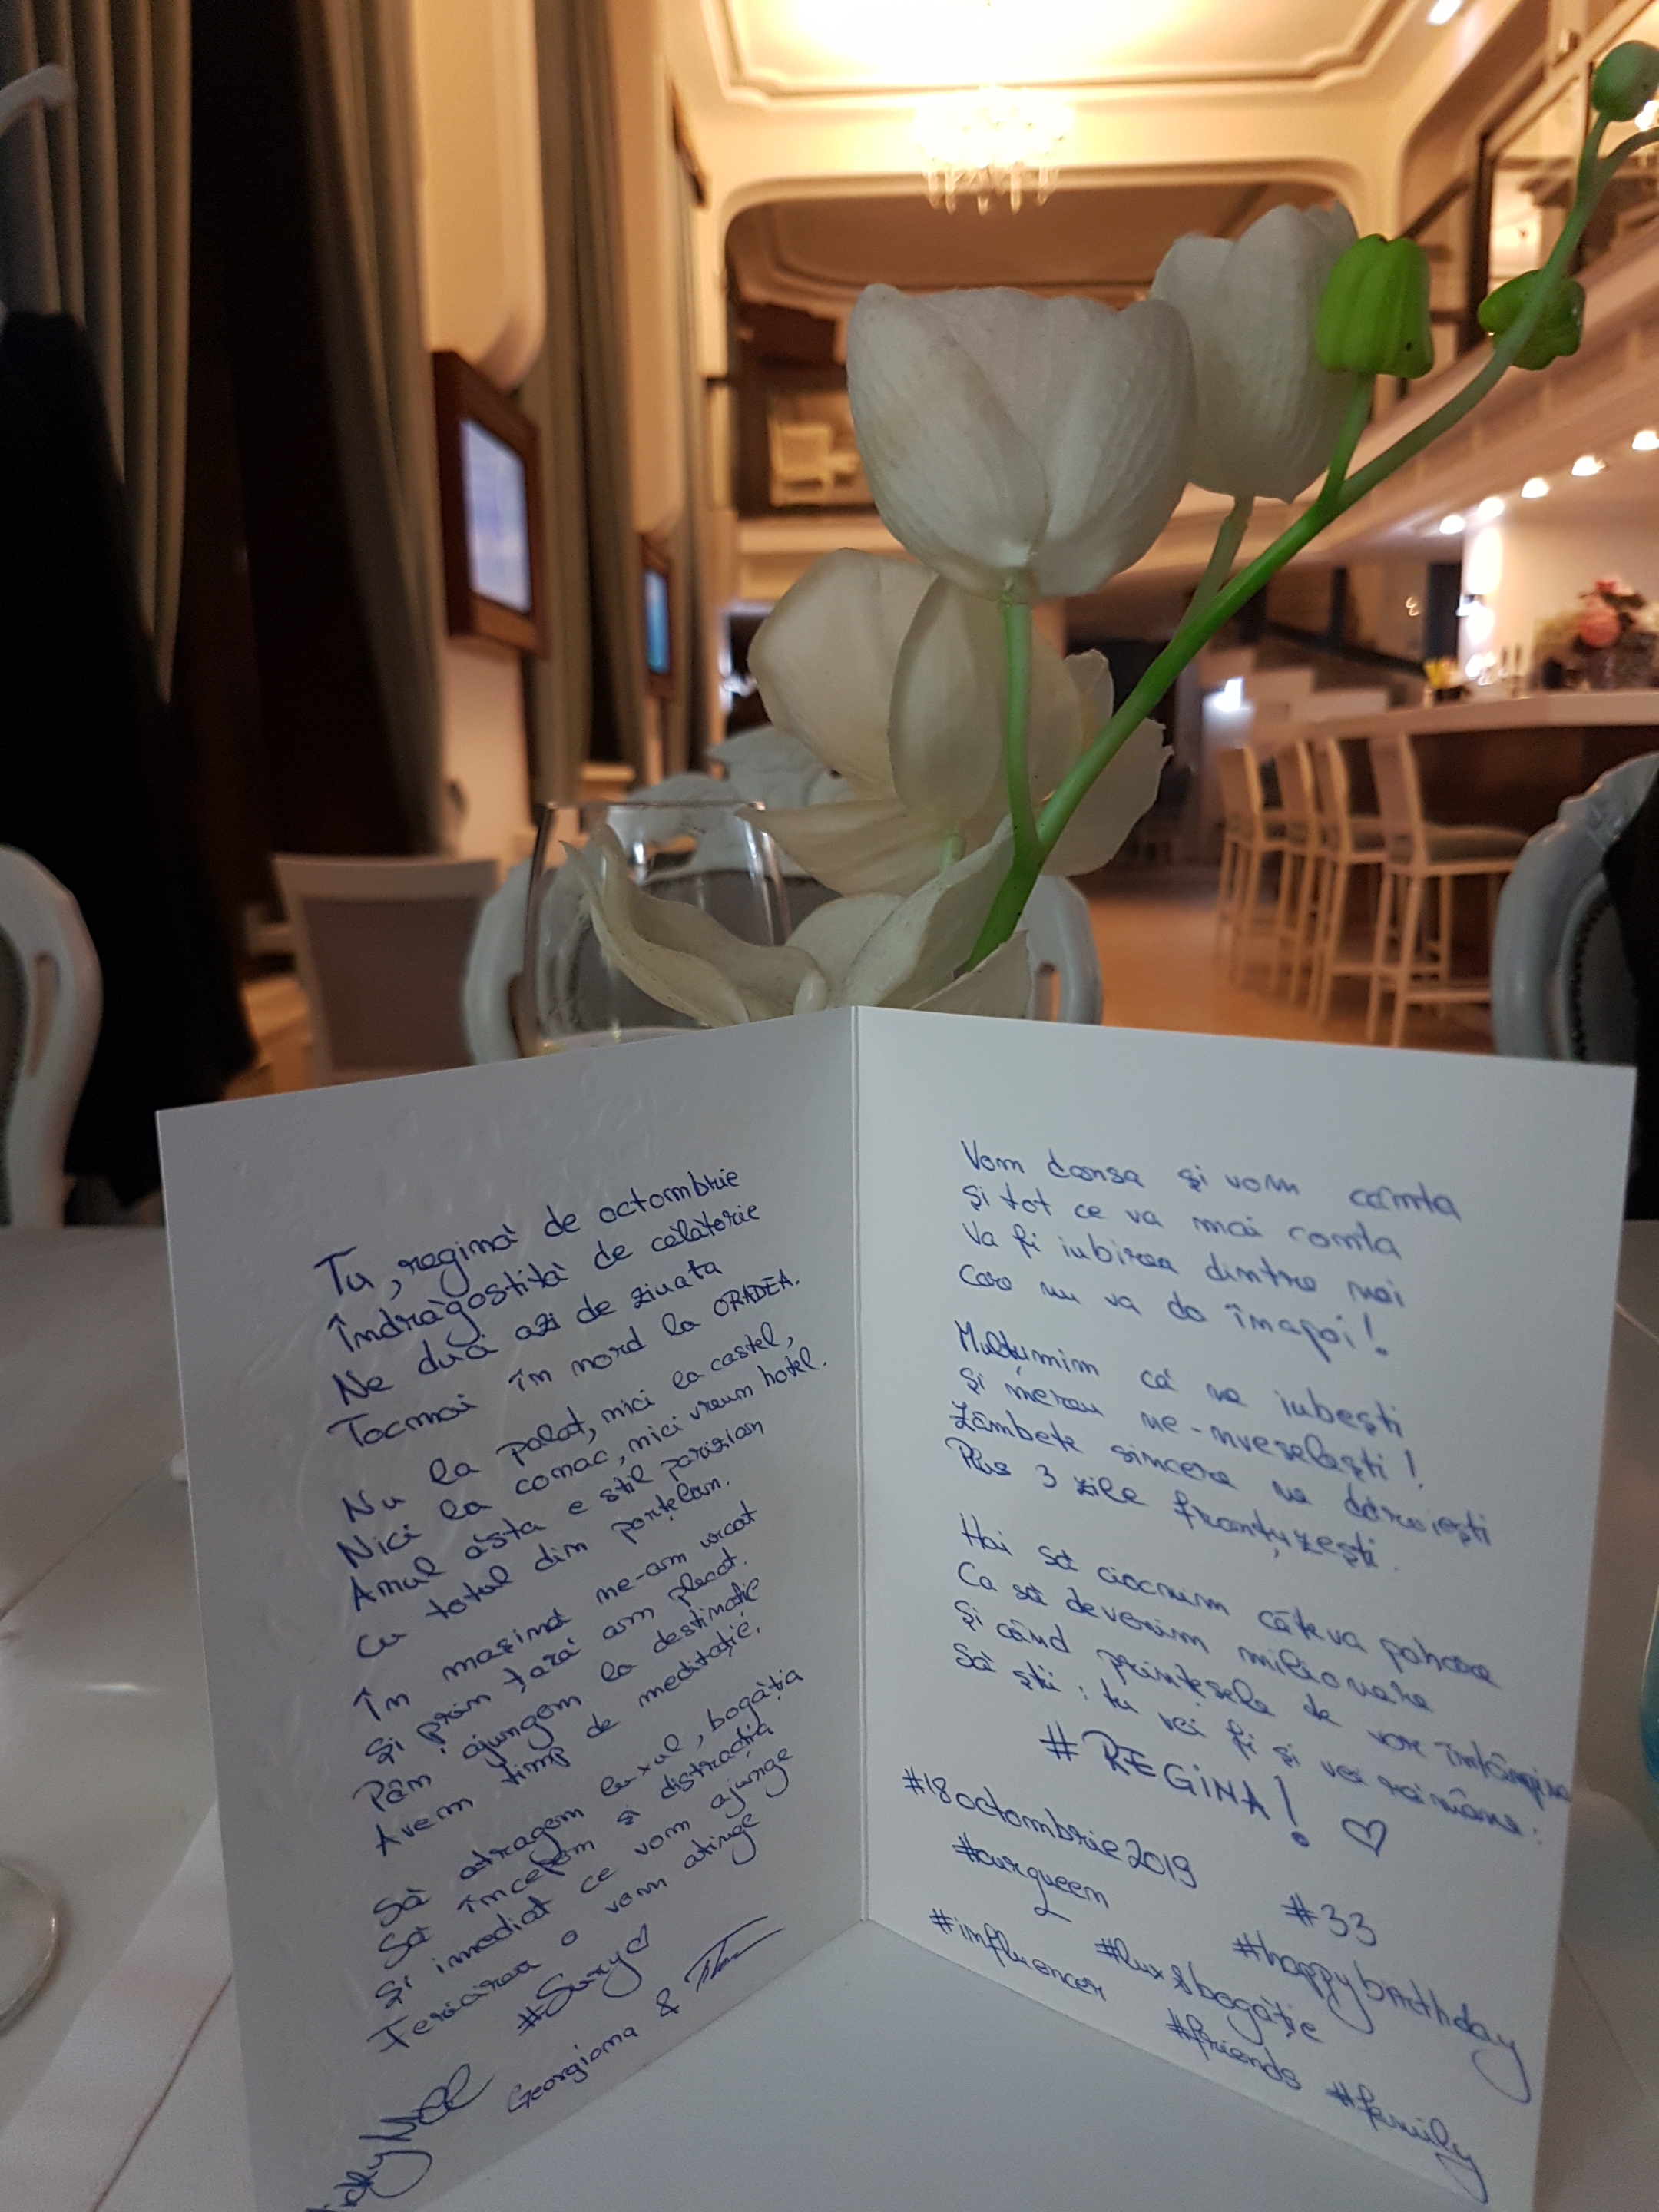 Tu, regină de octombrie
Îndrăgostită de călătorie
Ne duci azi de ziuata
Tocmai în nord la ORADEA.
Nu la palat, nici la castel,
Nici la conac, nici vreun hotel.
Anul ăsta e stil parizian
Cu totul din porțelan.
În mașină ne-am urcat
Și prin țară am plecat.
Pân ajungem la destinație
Avem timp de meditație.
Să atragem luxul, bogăția
Să începem și distracția
Și imediat ce vom ajunge
Fericirea o vom atinge
#Suzy♡
Georgiana &
Vom dansa și vom cânta
Și tot ce va mai conta
Va fi iubirea dintre noi
Care nu va da înapoi!
Mulțumim că ne iubești
Și mereu ne-nveselești!
Zâmbete sincere ne dăruiești
Plus 3 zile franțuzești.
Hai să ciocnim câteva pahare
Ca să devenim milionare
Și când prințesele te vor întâmpina
Să știi: tu vei fi și vei rămâne:
# REGINA! ♡
#18octombrie2019
#ourqueen
#33
#happybirthday
#influencer
#lux&bogăție
#friends
#family